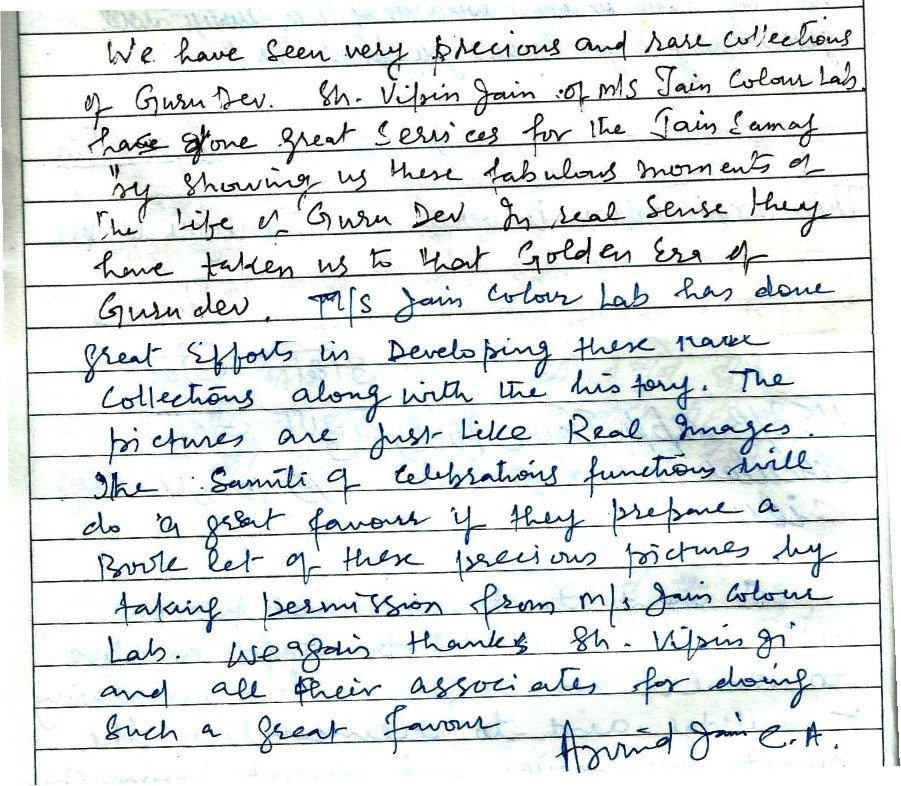 We have seen very precious and rare collections
of Guru Dev. Sh. Vipin Jain of M/s Jain Colour Lab.
have done great Services for the Jain Samaj
by showing us these fabulous moments of
the life of Guru Dev In real sense they
have taken us to that Golden Era of
Gurudev. M/s Jain Colour Lab has done
great Efforts in Developing these rare
Collections along with the history. The
pictures are Just Like Real Images.
The Samiti of Celebrations functions will
do a great favour if they prepare a
Book let of these precious pictures by
taking permission from M/s Jain Colour
Lab. We again thanks Sh. Vipin Ji
and all their associates for doing
Such a great favour
Arvind Jain C.A.